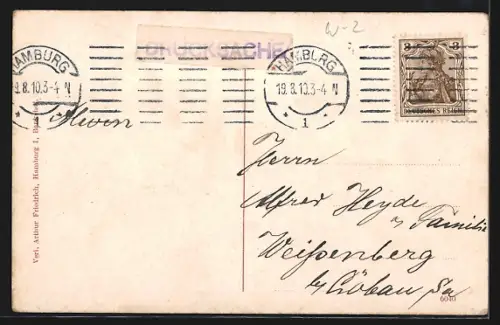 W-2
DRUCKSACHE
HAMBURG
9.8.10.3-4 N
1
HAMBURG
19.8.10.3-4 N
* 1 *
3 3
DEUTSCHES REICH
Herrn
Herrn
Alfred Heyde
u. Familie
Weißenberg
b/ Löbau Sa
Verl. Arthur Friedrich, Hamburg 1,
6040